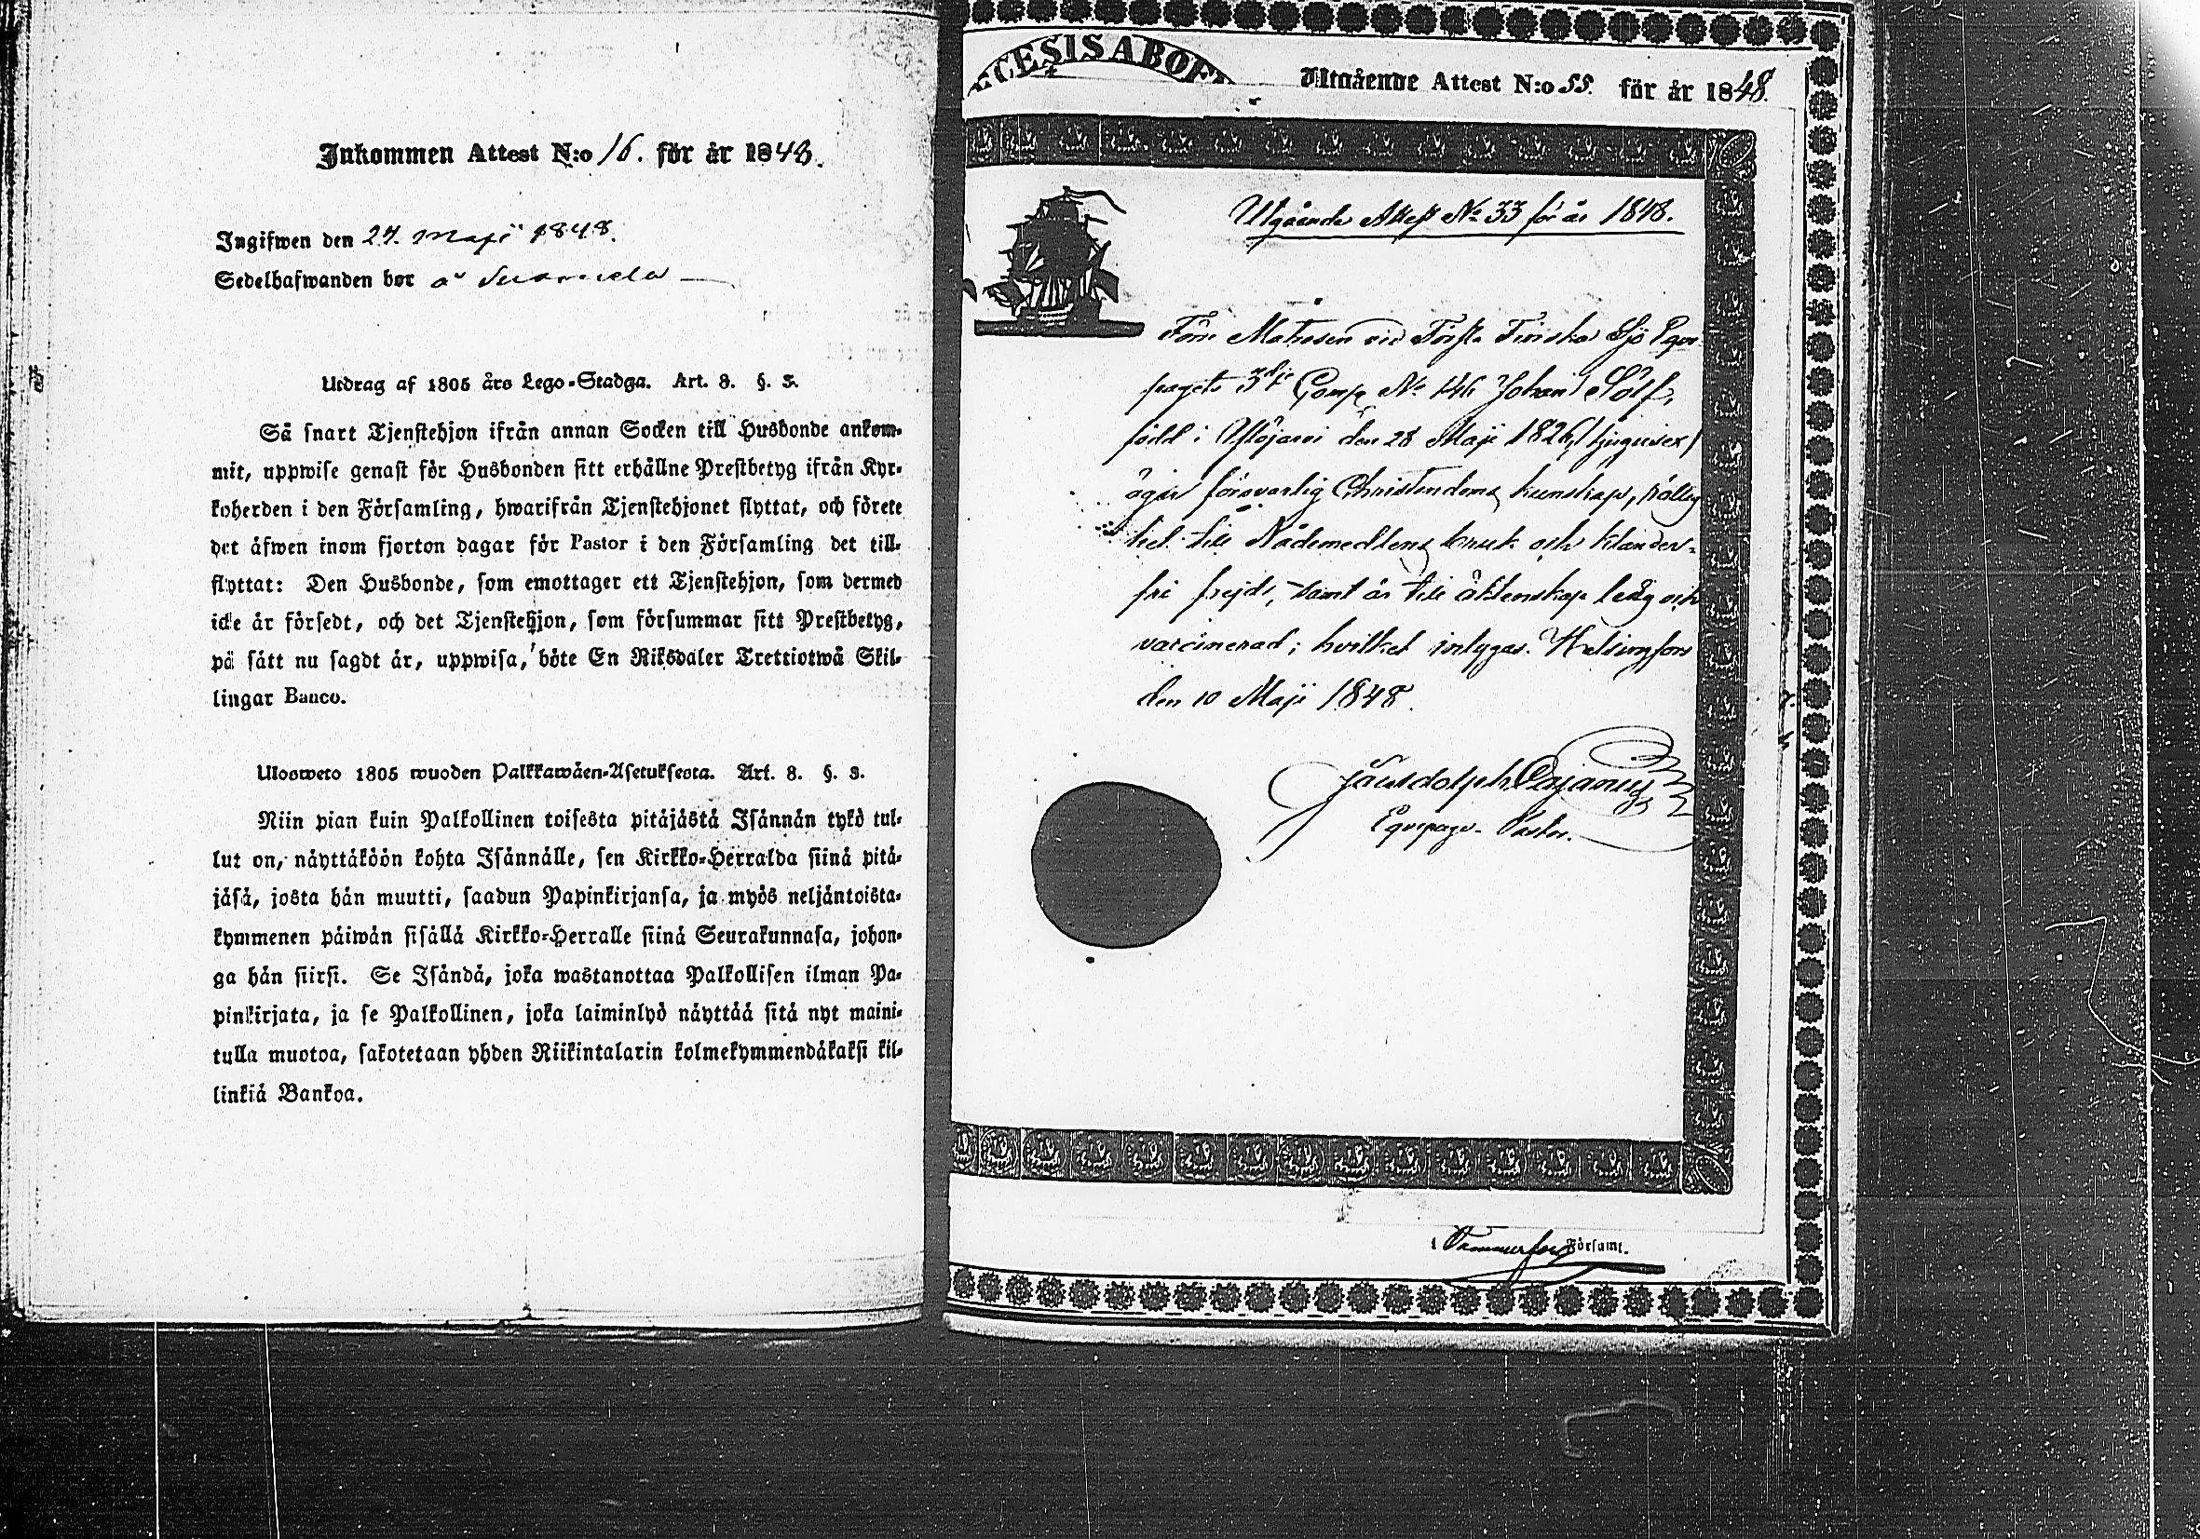 Inkommen Attest N:o 16. för år 1848.
Ingifwen den 27. Maji 1848.
Sedelhafwanden bor å
Utdrag af 1805 års Lego-Stadga. Art. 8. §. 3.
Så snart Tjenstehjon ifrån annan Socken till Husbonde ankom-
mit, uppwise genast för Husbonden sitt erhållne Prestbetyg ifrån Kyr-
koherden i den Församling, hwarifrån Tjenstehjonet flyttat, och förete
det äfwen inom fjorton dagar för Pastor i den Församling det till-
flyttat: Den Husbonde, som emottager ett Tjenstehjon, som dermed
icke är försedt, och det Tjenstehjon, som försummar sitt Prestbetyg,
på sätt nu sagdt är, uppwisa, böte En Riksdaler Trettiotwå Skil-
lingar Banco.
Ulosweto 1805 wuoden Palkkawäen-Asetuksesta. Art. 8. §. 3.
Niin pian kuin Palkollinen toisesta pitäjästä Isännän tykö tul-
lut on, näyttäköön kohta Isännälle, sen Kirkko-Herralda siinä pitä-
jäsä, josta hän muutti, saadun Papinkirjansa, ja myös neljäntoista-
kymmenen päiwän sisällä Kirkko-Herralle siinä Seurakunnasa, johon-
ga hän siirsi. Se Isändä, joka wastanottaa Palkollisen ilman Pa-
pinkirjata, ja se Palkollinen, joka laiminlyö näyttää sitä nyt maini-
tulla muotoa, sakotetaan yhden Riikintalarin kolmekymmendäkaksi kil-
linkiä Bankoa.
Utgående Attest N:o 55. för år 1848.
Utgående Attest No 33 för år 1848.
Förre Matrosen vid Första Finska Sjö Eqvi-
pagets 3dje Comp. No 146 Johan Sölf,
född i Ylöjärvi den 28 Maji 1826, /tjugusex/
äger försvarlig Christendoms kunskap,
till Nådemedlens bruk och klander-
fri frejd, samt är till äktenskap ledig och
vaccinerad; hvilket intygas. Helsingfors
den 10 Maji 1848.
Eqvipage-Pastor.
i Tammerfors Församl.